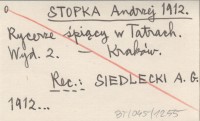 STOPKA Andrzej 1912.
Rycerze śpiący w Tatrach.
Wyd. 2. — Kraków.
Rec.: SIEDLECKI A. G.
1912...